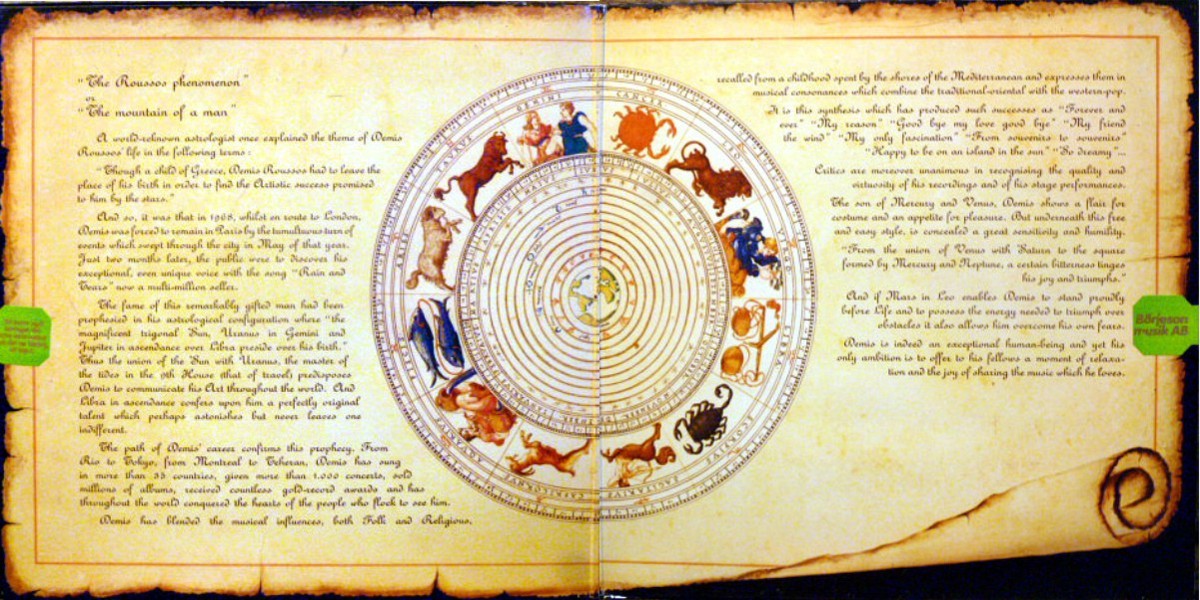 "The Roussos phenomenon"
or
"The mountain of a man"
A world-renown astrologist once explained the theme of Demis
Roussos' life in the following terms :
"Though a child of Greece, Demis Roussos had to leave the
place of his birth in order to find the Artistic success promised
to him by the stars."
And so, it was that in 1968, whilst en route to London,
Demis was forced to remain in Paris by the tumultuous turn of
events which swept through the city in May of that year.
Just two months later, the public were to discover his
exceptional, even unique voice with the song "Rain and
Tears" now a multi-million seller.
The fame of this remarkably gifted man had been
prophesied in his astrological configuration where "the
magnificent trigonal Sun, Uranus in Gemini and
Jupiter in ascendance over Libra preside over his birth."
Thus the union of the Sun with Uranus, the master of
the tides in the 9th House (that of travel) predisposes
Demis to communicate his Art throughout the world. And
Libra in ascendance confers upon him a perfectly original
talent which perhaps astonishes but never leaves one
indifferent.
The path of Demis' career confirms this prophecy. From
Rio to Tokyo, from Montreal to Teheran, Demis has sung
in more than 35 countries, given more than 1.000 concerts, sold
millions of albums, received countless gold-record awards and has
throughout the world conquered the hearts of the people who flock to see him.
Demis has blended the musical influences, both Folk and Religious,
GEMINI
CANCER
LEO
TAURUS
ARIES
recalled from a childhood spent by the shores of the Mediterranean and expresses them in
musical consonances which combine the traditional-oriental with the western-pop.
It is this synthesis which has produced such successes as "Forever and
ever" "My reason" "Good bye my love good bye" "My friend
the wind" "My only fascination" "From souvenirs to souvenirs"
"Happy to be on an island in the sun" "So dreamy"...
Critics are moreover unanimous in recognising the quality and
virtuosity of his recordings and of his stage performances.
The son of Mercury and Venus, Demis shows a flair for
costume and an appetite for pleasure. But underneath this free
and easy style, is concealed a great sensitivity and humility.
"From the union of Venus with Saturn to the square
formed by Mercury and Neptune, a certain bitterness tinges
his joy and triumphs."
And if Mars in Leo enables Demis to stand proudly
before Life and to possess the energy needed to triumph over
obstacles it also allows him overcome his own fears.
Demis is indeed an exceptional human-being and yet his
only ambition is to offer to his fellows a moment of relaxa-
tion and the joy of sharing the music which he loves.
Börjeson
musik AB